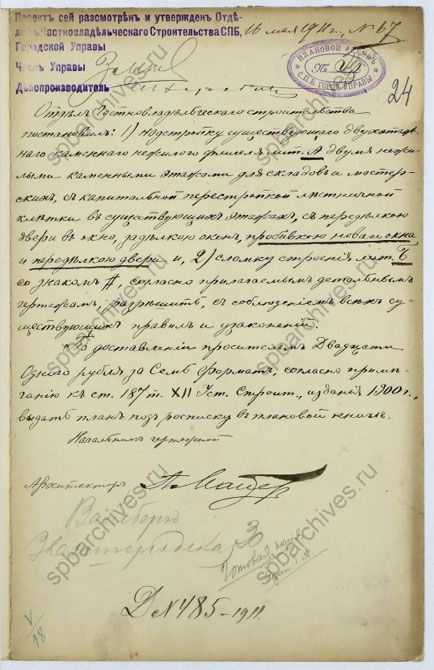 Проектъ сей разсмотрѣнъ и утвержденъ Отдѣ-
ломъ Частновладѣльческаго Строительства СПБ.
Городской Управы
16 мая 1911 г., № 67
Членъ Управы
Дѣлопроизводитель
ПЛАНОВОЙ АРХИВЪ
С.П.Б. ГОРОД. УПРАВЫ
24
Отдѣлъ Частновладѣльческаго строительства
постановилъ: 1) надстройку существующаго двухэтаж-
наго каменнаго нежилого флигеля лит. А двумя нежи-
лыми каменными этажами для складовъ и мастер-
скихъ, съ капитальной перестройкой лѣстничной
клѣтки въ существующихъ этажахъ, съ передѣлкою
двери въ окно, задѣлкою оконъ, пробивкою новаго окна
и передѣлкою двери и, 2) сломку строенія лит. Б
со знакомъ #, согласно прилагаемымъ детальнымъ
чертежамъ, разрѣшить, съ соблюденіемъ всѣхъ су-
ществующихъ правилъ и узаконеній.
По доставленіи просителемъ Двадцати
Одного рубля за Семь форматъ, согласно примѣ-
чанію къ ст. 187 т. XII Уст. Строит., изданія 1900 г.,
выдать планъ подъ росписку въ плановой книгѣ.
Начальникъ чертежной
Архитекторъ
Звенигородская 3
Д № 485-1911.
V
18
spbarchives.ru
spbarchives.ru
spbarchives.ru
spbarchives.ru